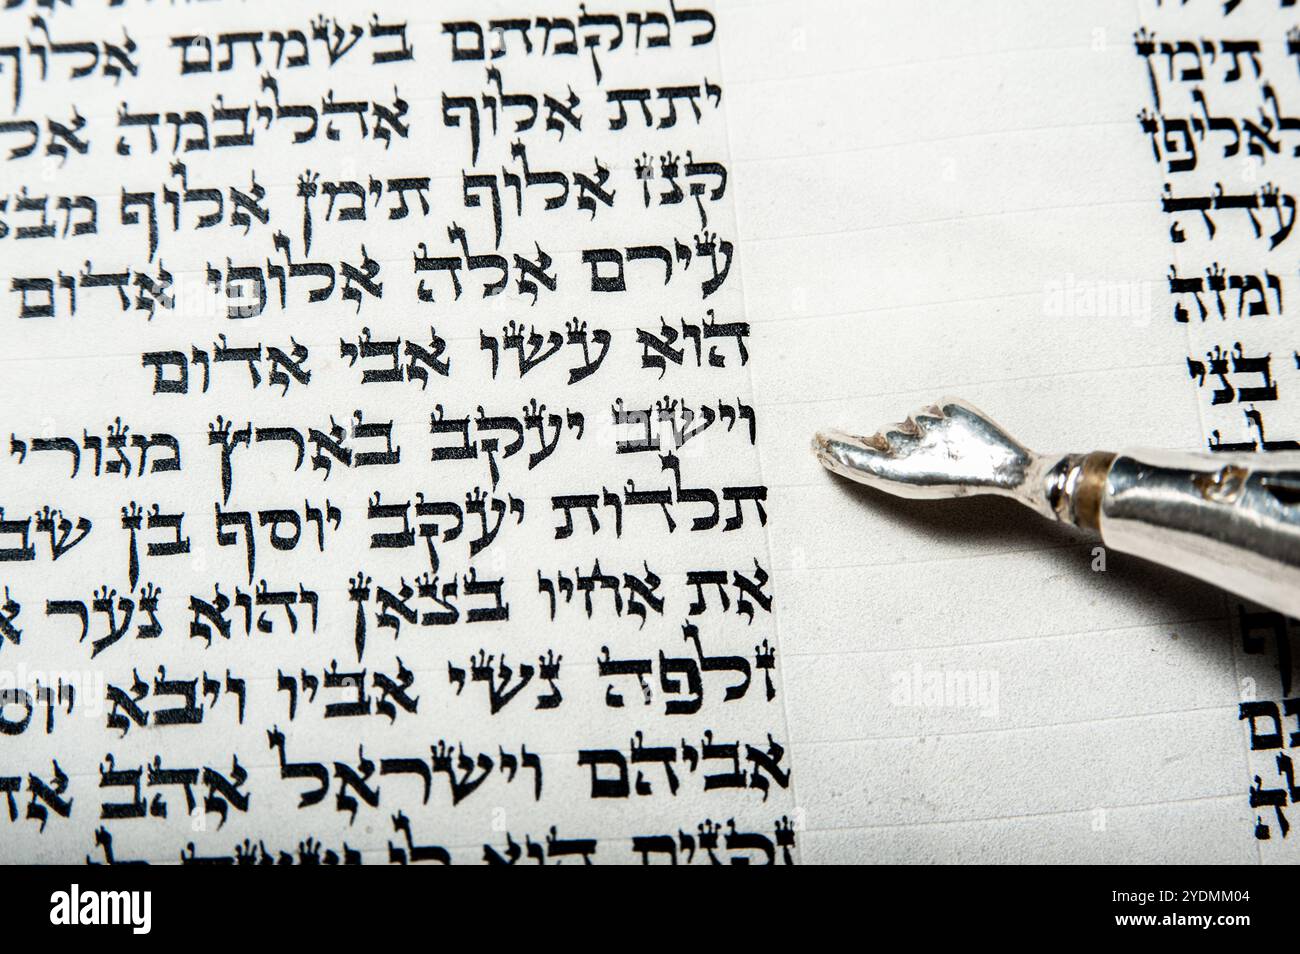 למקמתם בשמתם אלוף
יתת אלוף אהליבמה
קנז אלוף תימן אלוף
עירם אלה אלופי אדום
הוא עשו אבי אדום
וישב יעקב בארץ מגורי
תלדות יעקב יוסף בן
את אחיו בצאן והוא נער
זלפה נשי אביו ויבא
אביהם וישראל אהב
זקנים הוא לו
תימן
לאליפז
עדה
ומזה
בני
alamy
Image ID: 2YDMM04
www.alamy.com